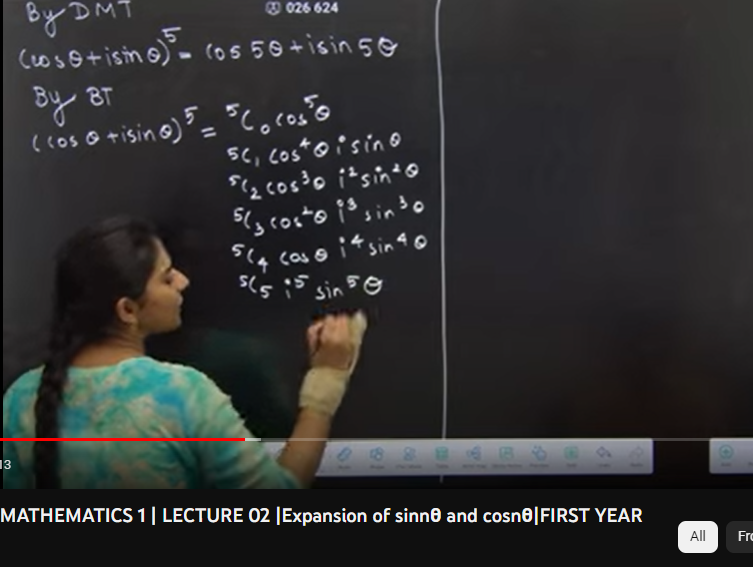 By DMT
026 624
(cosθ+isinθ)⁵ = cos 5θ+isin 5θ
By BT
(cosθ+isinθ)⁵ = ⁵C₀ cos⁵θ
5C₁ cos⁴θ i sinθ
⁵C₂ cos³θ i² sin²θ
⁵C₃ cos²θ i³ sin³θ
⁵C₄ cosθ i⁴ sin⁴θ
⁵C₅ i⁵ sin⁵θ
13
MATHEMATICS 1 | LECTURE 02 |Expansion of sinnθ and cosnθ|FIRST YEAR
All
Fro